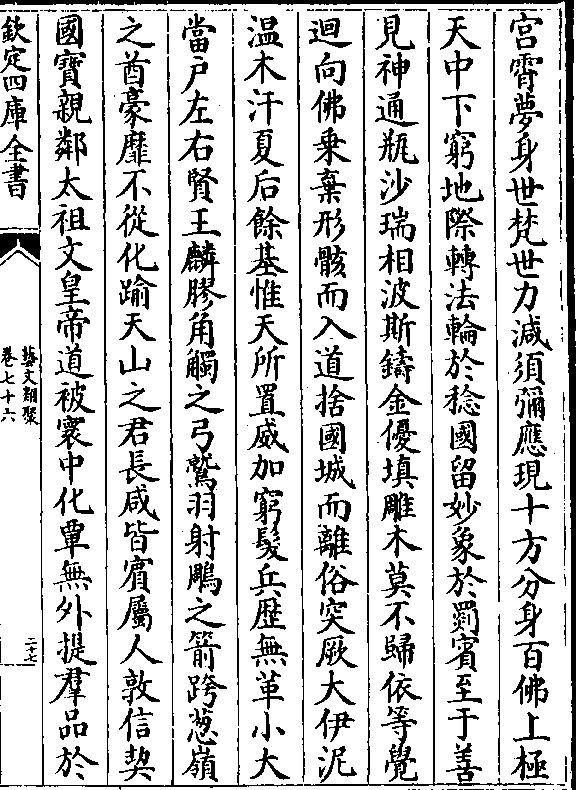 宫霄夢身世梵世力減須彌應現十方分身百佛上極
天中下窮地際轉法輪於稔國留妙象於罽賓至于善
見神通瓶沙瑞相波斯鑄金優填雕木莫不歸依等覺
迴向佛乗棄形骸而入道捨國城而離俗突厥大伊泥
温木汗夏后餘基惟天所置威加窮髮兵歴無革小大
當户左右賢王麟膠角觸之弓鷲羽射鵰之箭跨葱嶺
之酋豪靡不從化踰天山之君長咸皆賓屬人敦信契
國寳親鄰太祖文皇帝道被寰中化覃無外提羣品於
欽定四庫全書
藝文類聚
卷七十六
二十七